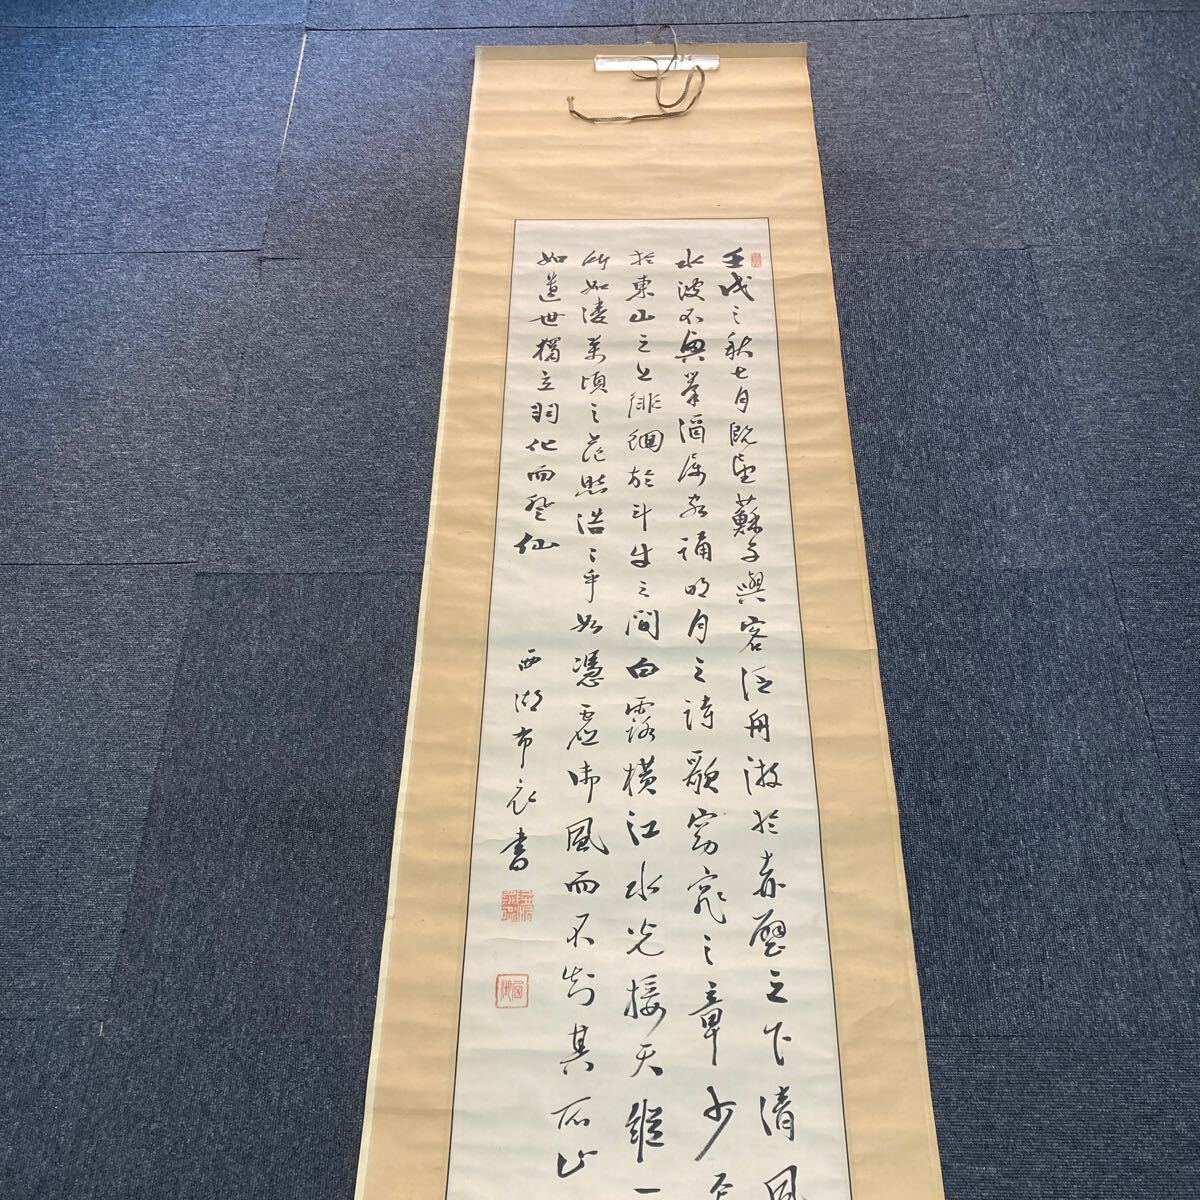 壬戌之秋七月既望蘇子與客泛舟游於赤壁之下清風
水波不興舉酒属客誦明月之詩歌窈窕之章少焉
於東山之上徘徊於斗牛之間白露横江水光接天縦一
所如凌萬頃之茫然浩々乎如馮虚御風而不知其所止
如遺世獨立羽化而登仙
西湖布衣書